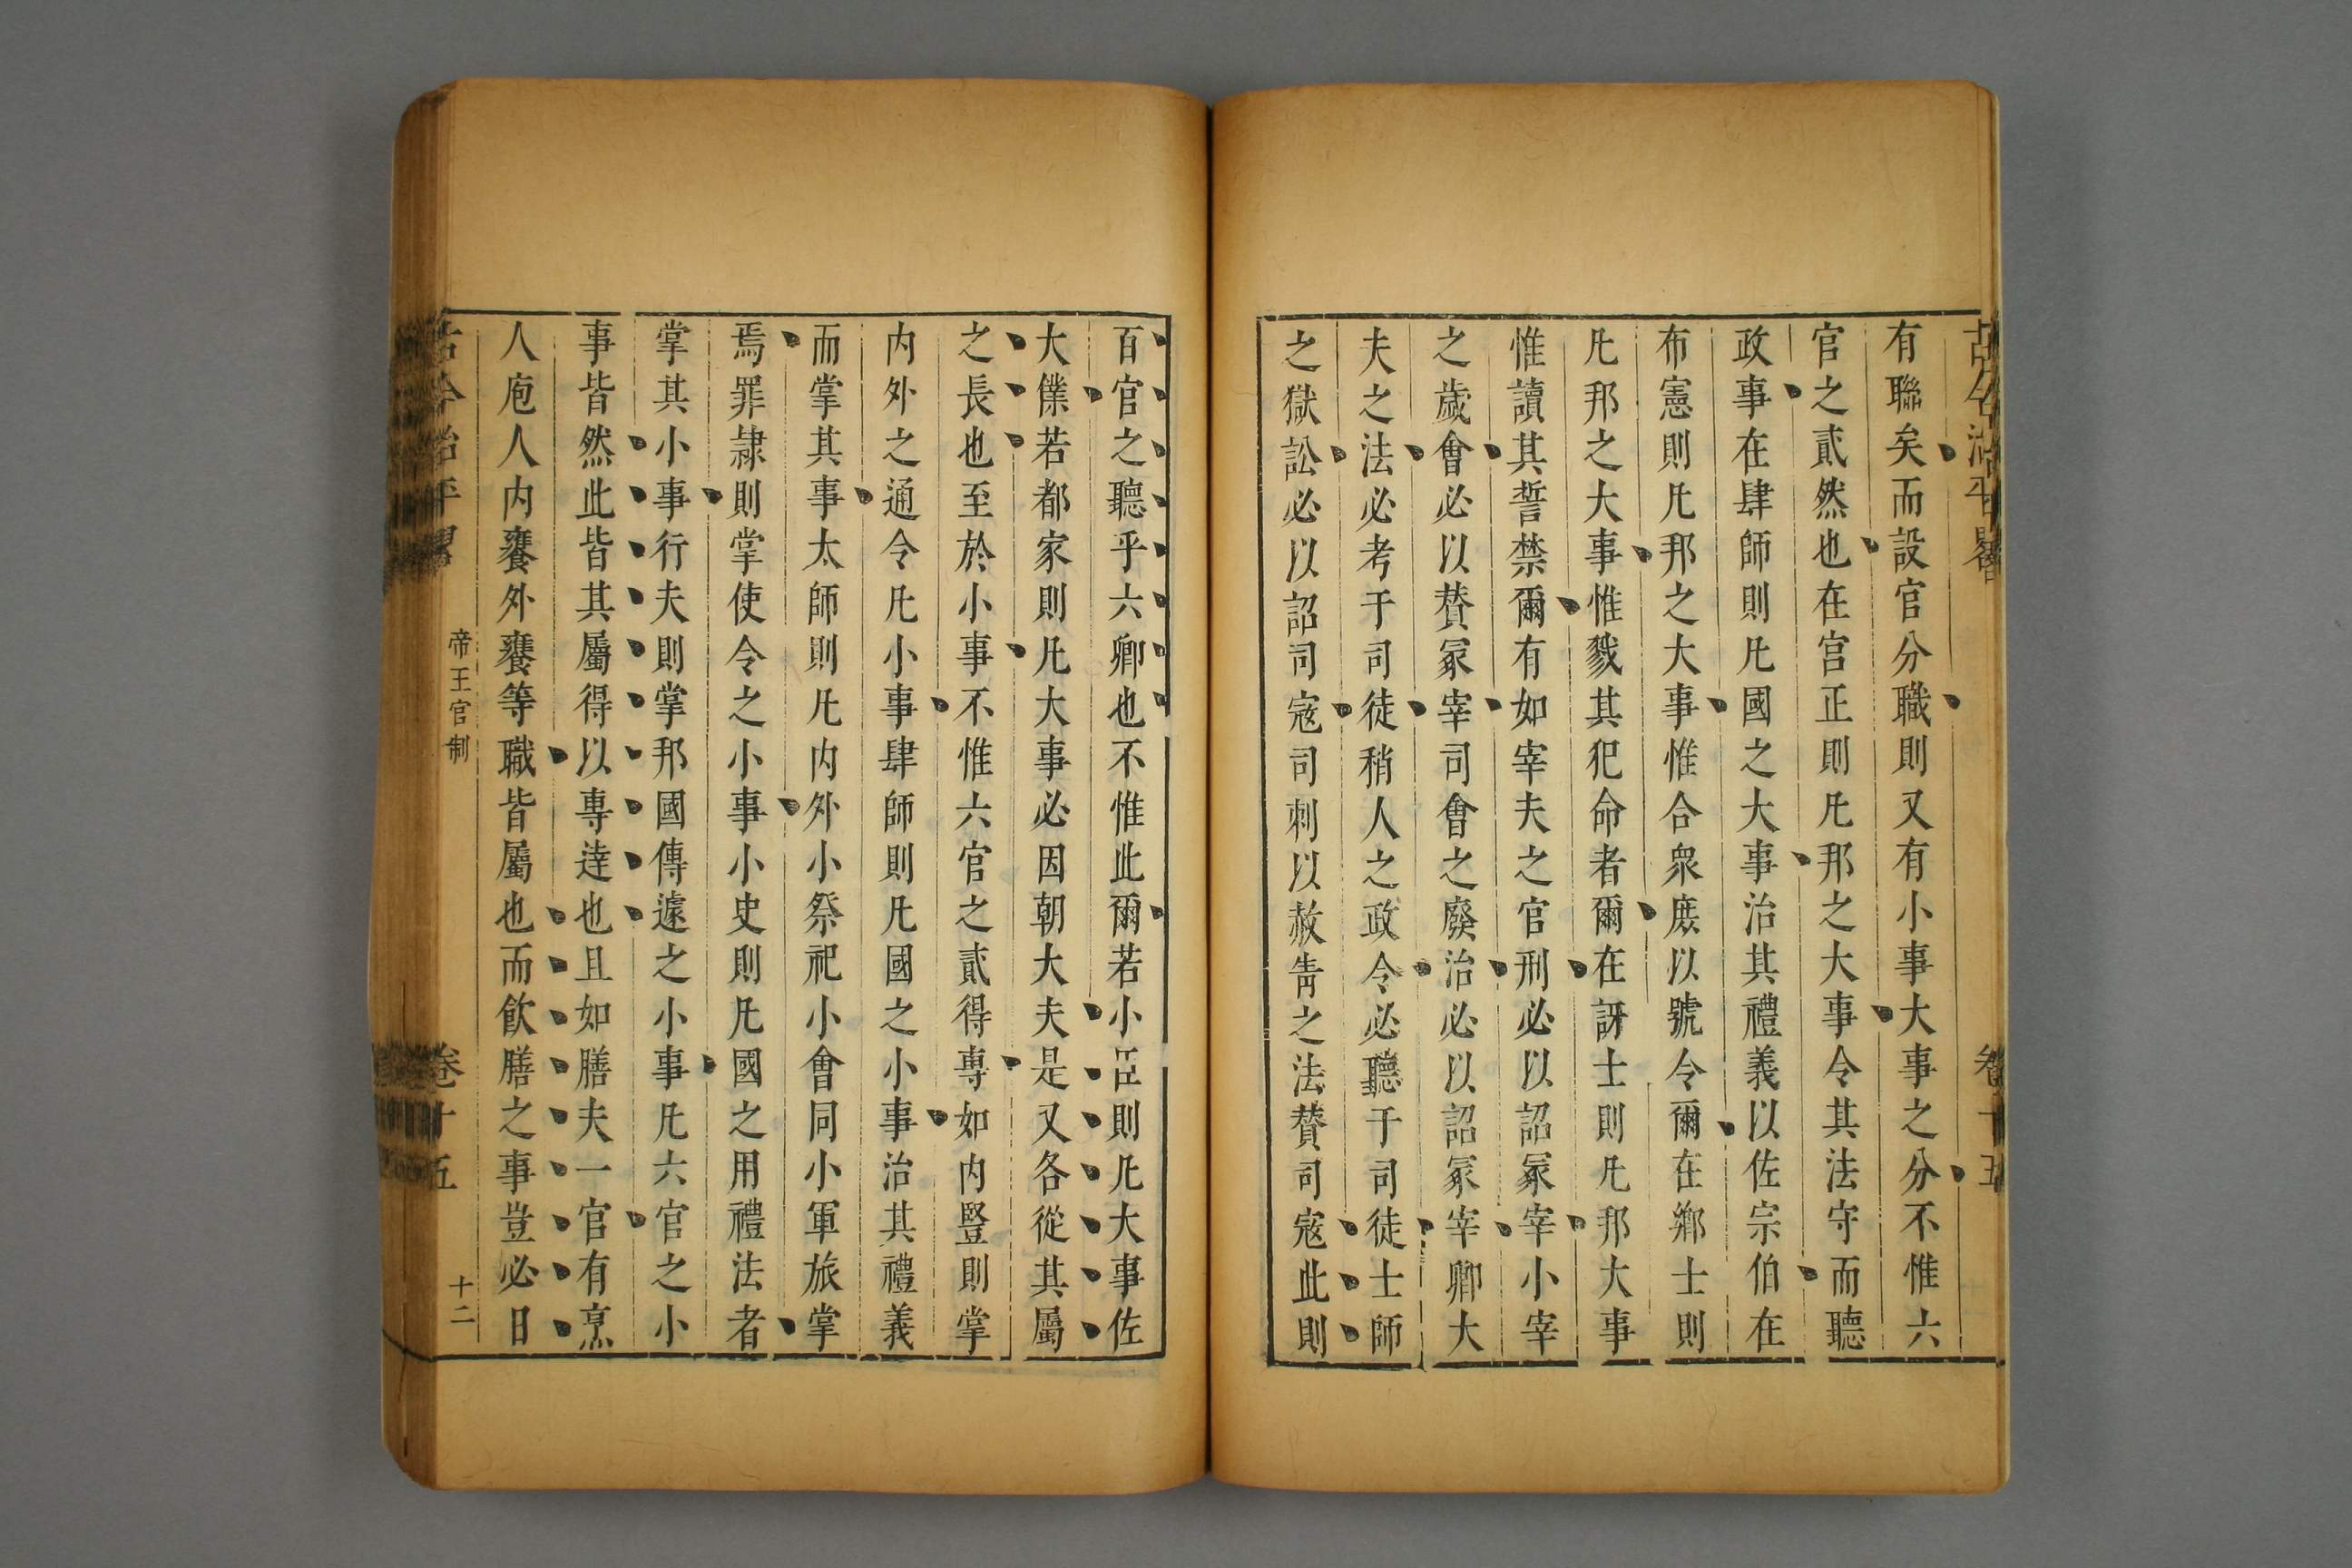 古今治平畧 卷十五
有聯矣而設官分職則又有小事大事之分不惟六
官之貳然也在宮正則凡邦之大事令其法守而聽
政事在肆師則凡國之大事治其禮義以佐宗伯在
布憲則凡邦之大事惟合衆庶以號令爾在鄉士則
凡邦之大事惟戮其犯命者爾在訝士則凡邦大事
惟讀其誓禁爾有如宰夫之官刑必以詔冢宰小宰
之歲會必以贊冢宰司會之廢治必以詔冢宰鄉大
夫之法必考于司徒稍人之政令必聽于司徒士師
之獄訟必以詔司寇司刺以赦眚之法贊司寇此則
百官之聽乎六卿也不惟此爾若小臣則凡大事佐
大僕若都家則凡大事必因朝大夫是又各從其屬
之長也至於小事不惟六官之貳得專如内豎則掌
内外之通令凡小事肆師則凡國之小事治其禮義
而掌其事太師則凡内外小祭祀小會同小軍旅掌
焉罪隷則掌使令之小事小史則凡國之用禮法者
掌其小事行夫則掌邦國傳遽之小事凡六官之小
事皆然此皆其屬得以專逹也且如膳夫一官有烹
人庖人内饔外饔等職皆屬也而飲膳之事豈必日
古今治平畧 帝王官制 卷十五 十二